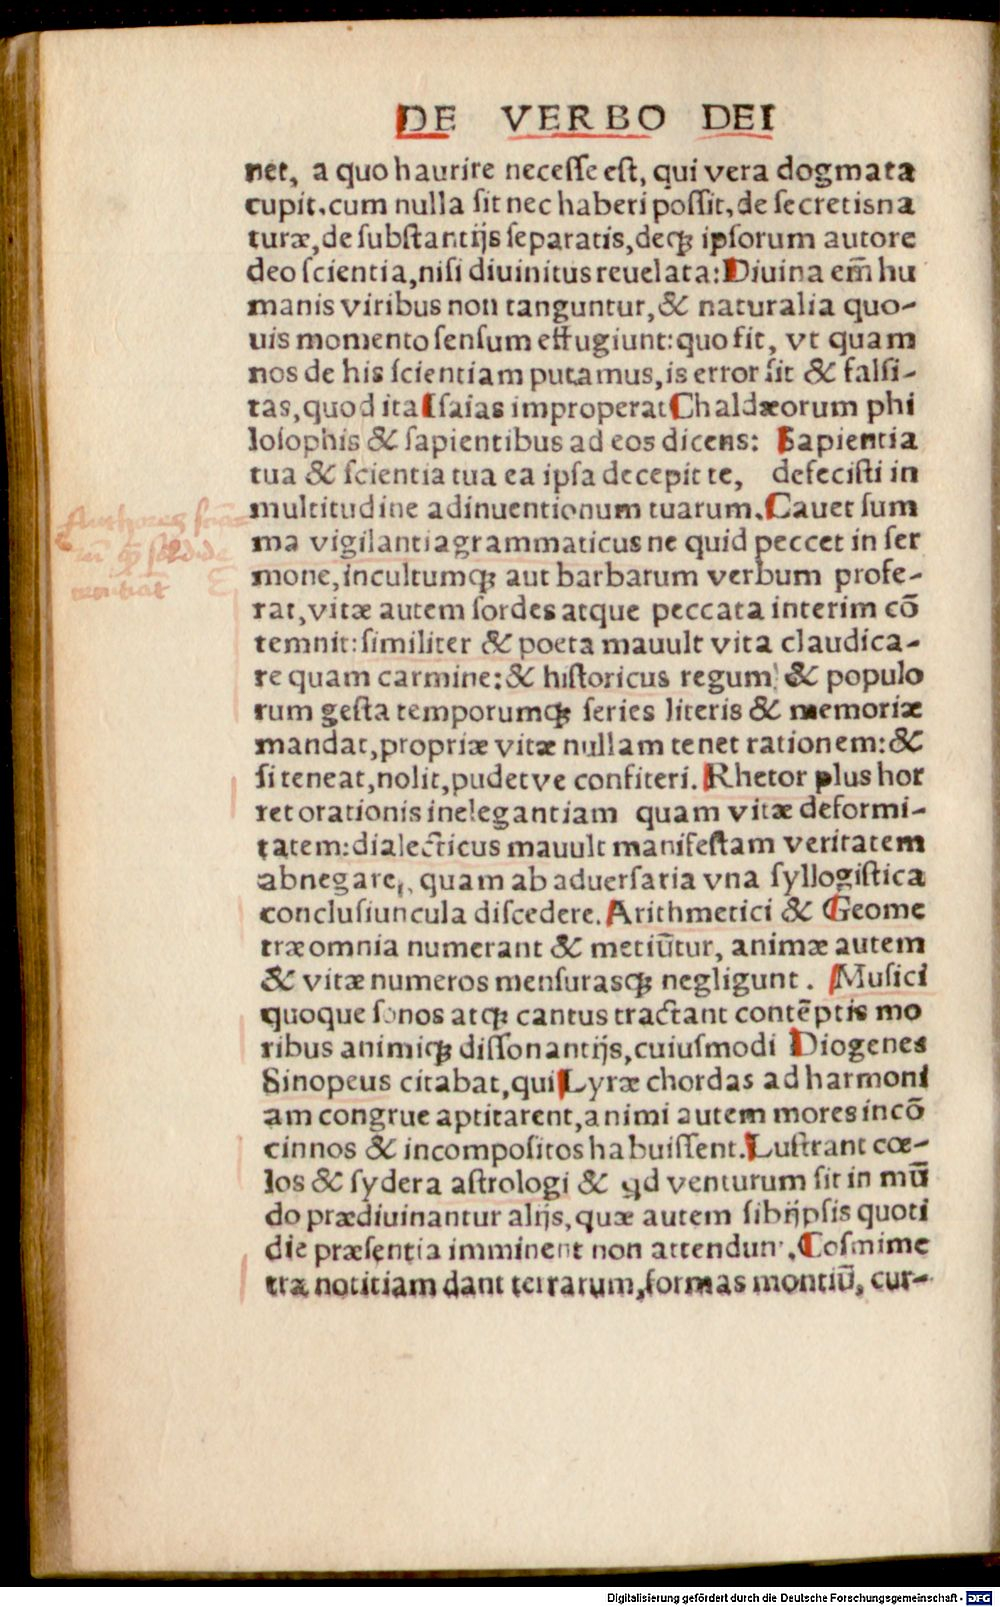 DE VERBO DEI
net, a quo haurire necesse est, qui vera dogmata
cupit, cum nulla sit nec haberi possit, de secretis na
turæ, de substantijs separatis, deq; ipsorum autore
deo scientia, nisi diuinitus reuelata: Diuina em̃ hu
manis viribus non tanguntur, & naturalia quo-
uis momento sensum effugiunt: quo fit, vt quam
nos de his scientiam putamus, is error sit & falsi-
tas, quod ita Isaias improperat Chaldæorum phi
losophis & sapientibus ad eos dicens: Sapientia
tua & scientia tua ea ipsa decepit te, defecisti in
multitudine adinuentionum tuarum. Cauet sum
ma vigilantia grammaticus ne quid peccet in ser
mone, incultumq; aut barbarum verbum profe-
rat, vitæ autem sordes atque peccata interim cõ
temnit: similiter & poeta mauult vita claudica-
re quam carmine: & historicus regum & populo
rum gesta temporumq; series literis & memoriæ
mandat, propriæ vitæ nullam tenet rationem: &
si teneat, nolit, pudetve confiteri. Rhetor plus hor
ret orationis inelegantiam quam vitæ deformi-
tatem: dialecticus mauult manifestam veritatem
abnegare, quam ab aduersaria vna syllogistica
conclusiuncula discedere. Arithmetici & Geome
træ omnia numerant & metiũtur, animæ autem
& vitæ numeros mensurasq; negligunt. Musici
quoque sonos atq; cantus tractant contẽptis mo
ribus animiq; dissonantijs, cuiusmodi Diogenes
Sinopeus citabat, qui Lyræ chordas ad harmoni
am congrue aptitarent, animi autem mores incõ
cinnos & incompositos habuissent. Lustrant cœ-
los & sydera astrologi & qd venturum sit in mũ
do prædiuinantur alijs, quæ autem sibijpsis quoti
die præsentia imminent non attendun. Cosmime
træ notitiam dant terrarum, formas montiũ, cur-
Authores
Digitalisierung gefördert durch die Deutsche Forschungsgemeinschaft - DFG